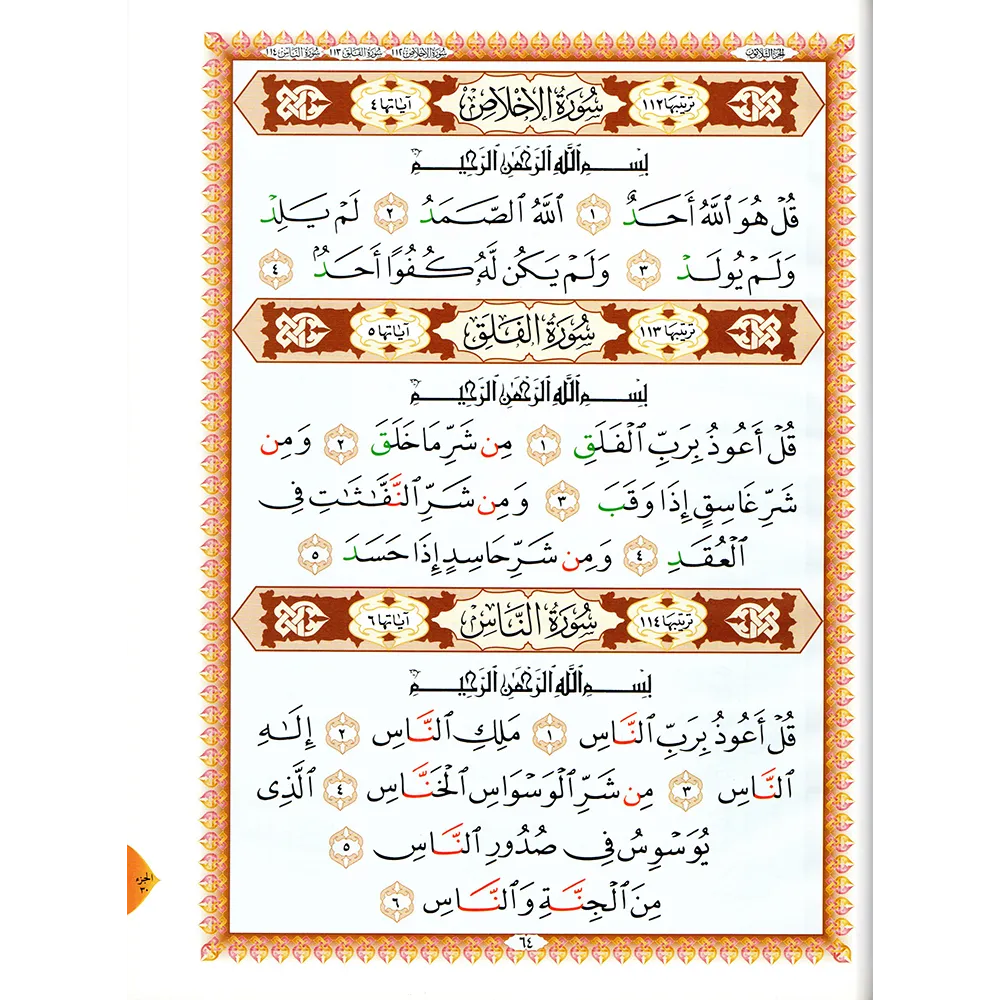 الجزء الثلاثون
سورة الإخلاص ١١٢ سورة الفلق ١١٣ سورة الناس ١١٤
ترتيبها ١١٢ سُورَةُ الإِخْلَاصِ آياتها ٤
بِسْمِ ٱللَّهِ ٱلرَّحْمَٰنِ ٱلرَّحِيمِ
قُلْ هُوَ ٱللَّهُ أَحَدٌ ١ ٱللَّهُ ٱلصَّمَدُ ٢ لَمْ يَلِدْ
وَلَمْ يُولَدْ ٣ وَلَمْ يَكُن لَّهُۥ كُفُوًا أَحَدٌۢ ٤
ترتيبها ١١٣ سُورَةُ الفَلَقِ آياتها ٥
بِسْمِ ٱللَّهِ ٱلرَّحْمَٰنِ ٱلرَّحِيمِ
قُلْ أَعُوذُ بِرَبِّ ٱلْفَلَقِ ١ مِن شَرِّ مَا خَلَقَ ٢ وَمِن
شَرِّ غَاسِقٍ إِذَا وَقَبَ ٣ وَمِن شَرِّ ٱلنَّفَّٰثَٰتِ فِى
ٱلْعُقَدِ ٤ وَمِن شَرِّ حَاسِدٍ إِذَا حَسَدَ ٥
ترتيبها ١١٤ سُورَةُ النَّاسِ آياتها ٦
بِسْمِ ٱللَّهِ ٱلرَّحْمَٰنِ ٱلرَّحِيمِ
قُلْ أَعُوذُ بِرَبِّ ٱلنَّاسِ ١ مَلِكِ ٱلنَّاسِ ٢ إِلَٰهِ
ٱلنَّاسِ ٣ مِن شَرِّ ٱلْوَسْوَاسِ ٱلْخَنَّاسِ ٤ ٱلَّذِى
يُوَسْوِسُ فِى صُدُورِ ٱلنَّاسِ ٥
مِنَ ٱلْجِنَّةِ وَٱلنَّاسِ ٦
٦٤
الجزء
٣٠